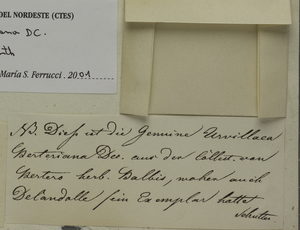 DEL NORDESTE (CTES)
ana DC.
th
María S. Ferrucci . 2001
NB. Dieß ist die Genuine Urvillaea
Berteriana Dec. aus der Collect. von
Bertero herb. Balbis, woher auch
DeCandolle sein Exemplar hatte